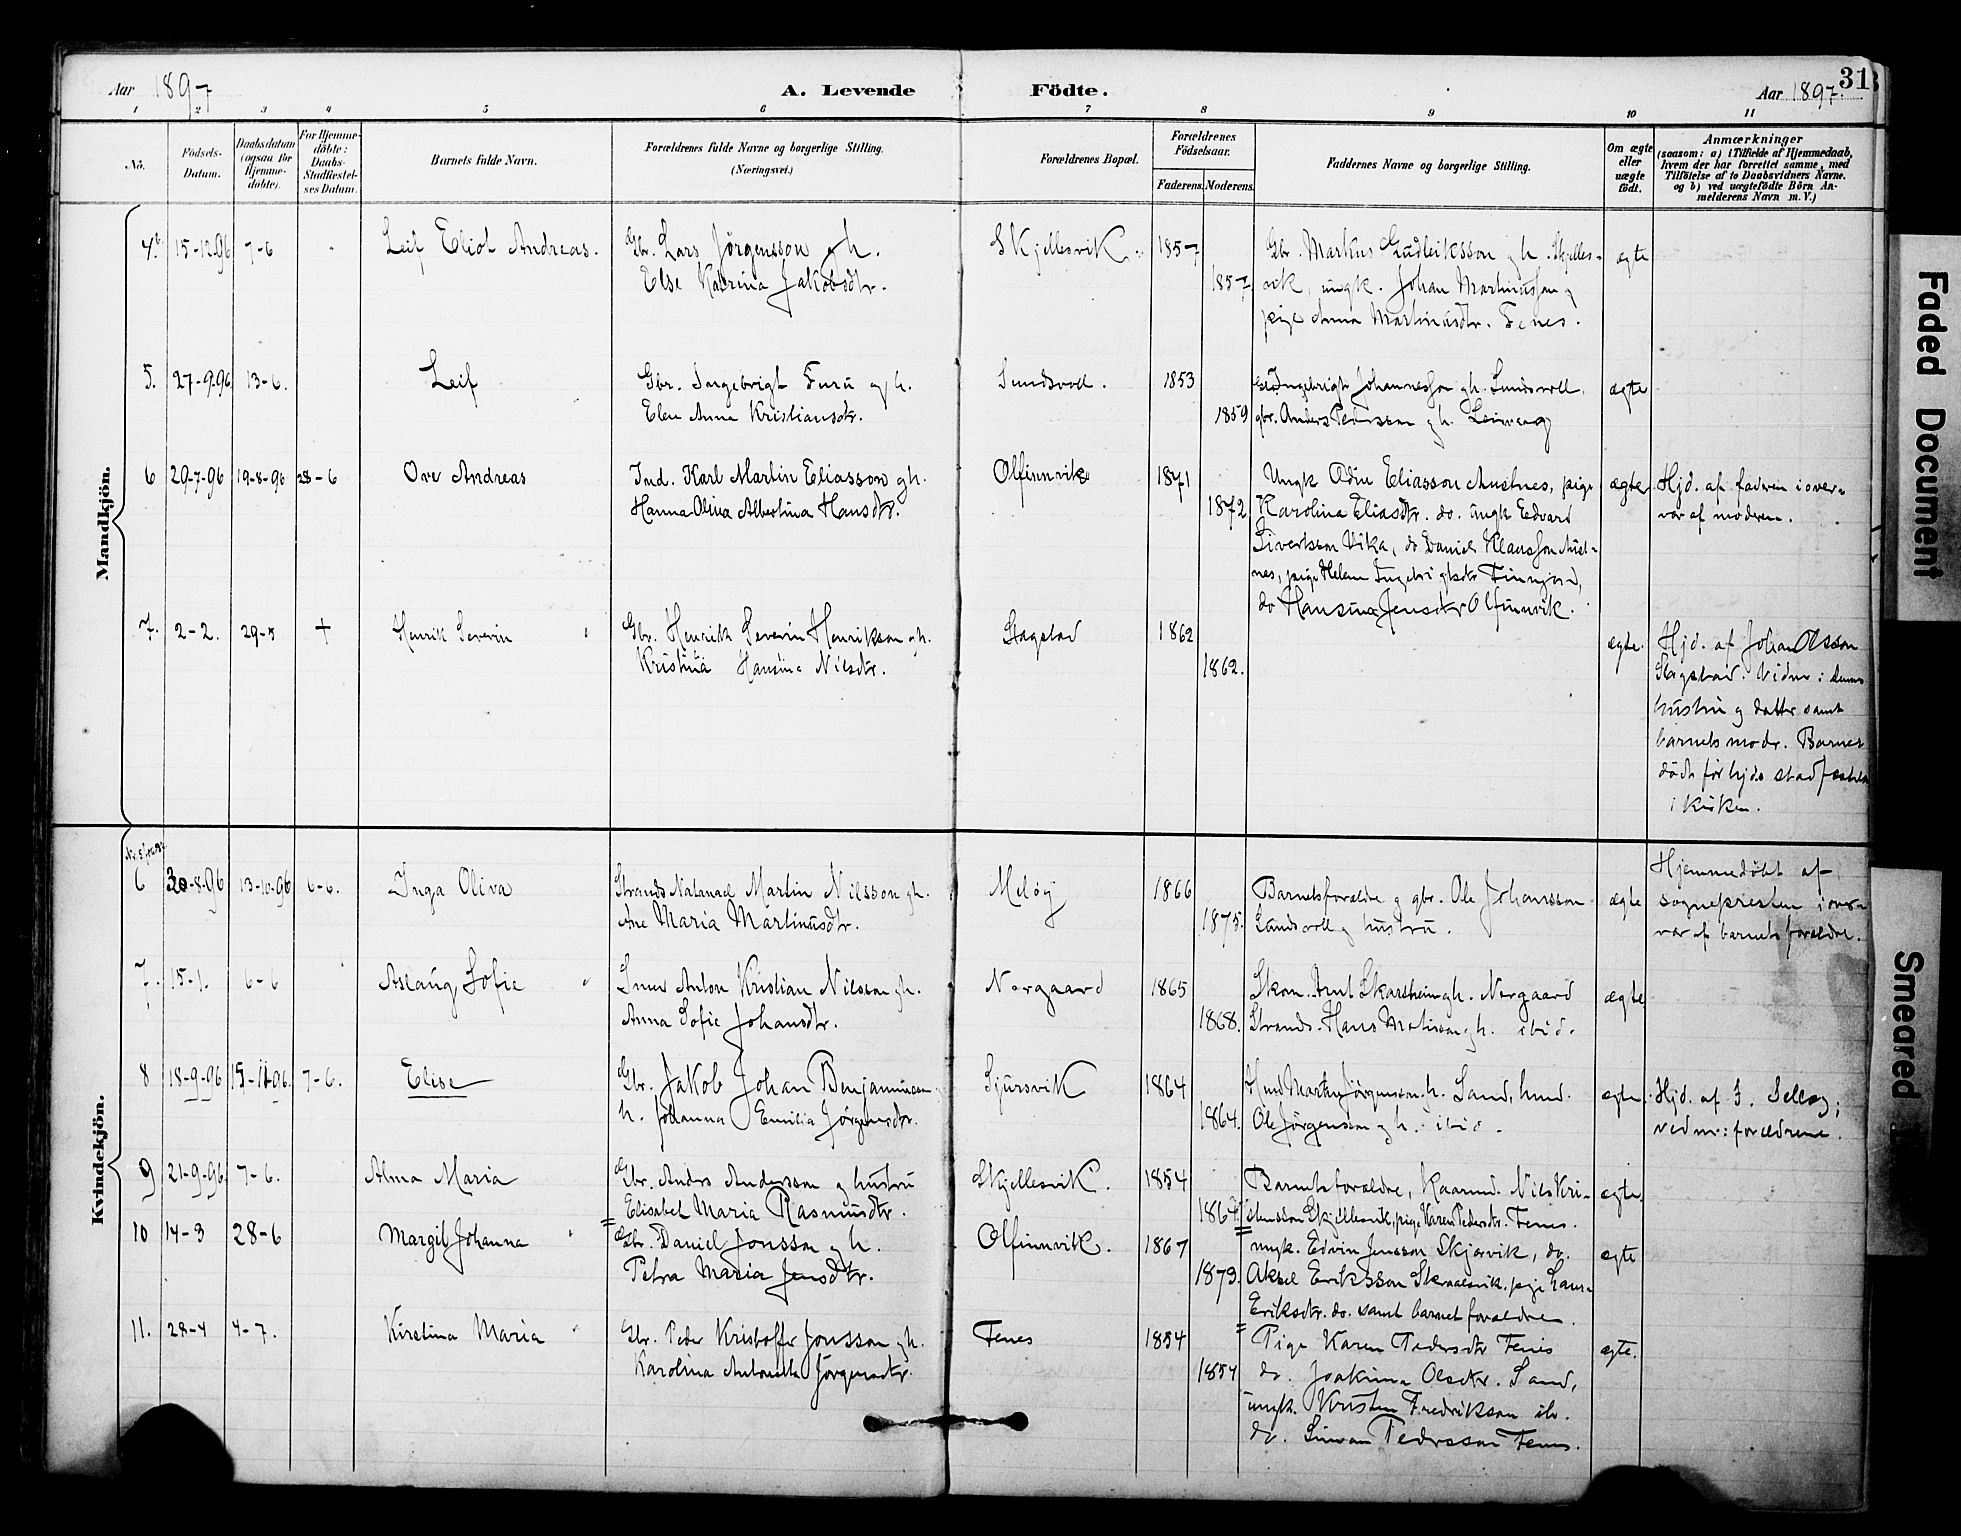 31
Aar 1897
A. Levende Födte.
Aar 1897.
1 2 3 4 5 6 7 8 9 10 11
No.
Födsels-Datum.
Daabsdatum (ogsaa for Hjemme-døbte).
For Hjemme-döbte: Daabs-Stadfæstel-ses Datum.
Barnets fulde Navn.
Forældrenes fulde Navne og borgerlige Stilling.
(Næringsvei.)
Forældrenes Bopæl.
Forældrenes Födselsaar.
Faderens. Moderens.
Faddernes Navne og borgerlige Stilling.
Om ægte eller uægte födt.
Anmærkninger
(saasom: a) i Tilfælde af Hjemmedaab,
hvem der har forrettet samme, med
Tilföielse af to Daabsvidners Navne,
og b) ved uægtefödte Börn An-
melderens Navn m.V.)
Mandkjön.
4. 15-12-96 7-6 Leif Eliot Andreas. Gbr. Lars Jörgensson g h. Skjellesvik. 1857 Gbr. Markus Gudleiksson g h. Skjelles- ægte
Else Katrina Jakobsdtr. 1857 vik, ungk. Johan Martinusson g
pige Anna Martinusdtr. Fenes.
5. 27-9-96 13-6. Leif Gbr. Ingebrigt Furu g h. Sundsvoll. 1853 Ingebrigt Johannesson g h. Sundsvoll, ægte
Elen Anna Kristiansdtr. 1859 gbr. Anders Pedersson g h. Leirvaag
6 29-7-96 19-8-96 28-6 Ove Andreas Ind. Karl Martin Eliasson g h. Olfinnvik 1871 Ungk Odin Eliasson Austnes, pige ægte Hjd. af faderen i over-
Hanna Oliva Albertina Hansdtr. 1872 Karolina Eliasdtr. do. ungk Edvard vær af moderen.
Sivertsson Vika, do Daniel Klausson Aust-
nes, pige Helena Ingebrigtsdtr Finnjord,
do Hansina Jensdtr Olfinnvik.
7. 2-2. 29-5 + Henrik Severin Gbr. Henrik Severin Henriksson g h. Stagstad 1862 ægte. Hjd. af Johan Olsson
Kristina Hansina Nilsdtr. 1862. Stagstad. Vidner: dennes
hustru g datter samt
barnets moder. Barnet
död för hjd. stadfæstelse
i kirken.
Kvindekjön.
6 30-8-96 13-10-96 6-6. Inga Oliva Strands. Natanael Martin Nilsson g h. Melöy 1866 Barnets forældre g gbr. Ole Johansson ægte Hjemmedöbt af
Ane Maria Martinusdtr. 1875. Sundsvoll g hustru. sognepresten i over-
vær af barnets forældre.
7. 15-1. 6-6 Aslaug Sofie Anton Kristian Nilsson g h. Norgaard 1865 Skom. Arnt Skarsheim g h. Norgaard ægte
Anna Sofie Johansdtr. 1868. Strands. Hans g h. ibid.
8 18-9-96 15-11-96. 7-6. Elise Gbr. Jakob Johan Benjaminsson Sjursvik 1864 Martin Jörgensson g h. Sand, ægte Hjd. af J. Selöy;
h. Johanna Emilia Jörgensdtr. 1864. Ole Jörgensson g h. ibid. vidner: forældrene.
9 21-9-96. 7-6. Alma Maria Gbr. Anders Andersson g hustru Skjellesvik. 1854 Barnets forældre, Nils Kri- ægte
Elisabet Maria Rasmusdtr. stensson Skjellesvik, pige Karen Pedersdtr. Fenes.
10 14-3 28-6 Margit Johanna Gbr. Daniel Jonsson g h. Olfinnvik. 1867 ungk. Edvin Jensson Skjærvik, do. ægte
Petra Maria Jensdtr. 1873. Aksel Eriksson pige
Eriksdtr. do. samt barnets forældre.
11. 28-4 4-7. Kirstina Maria Gbr. Peder Kristoffer Jonsson g h. Fenes 1854 Pige Karen Pedersdtr Fenes ægte.
Karolina Antonetta Jörgensdtr. 1854 do. Joakima Olsdtr. Sand,
ungk. Kristen Fredriksson ib.
do. Simon Pedersson Fenes.
Faded Document
Smeared